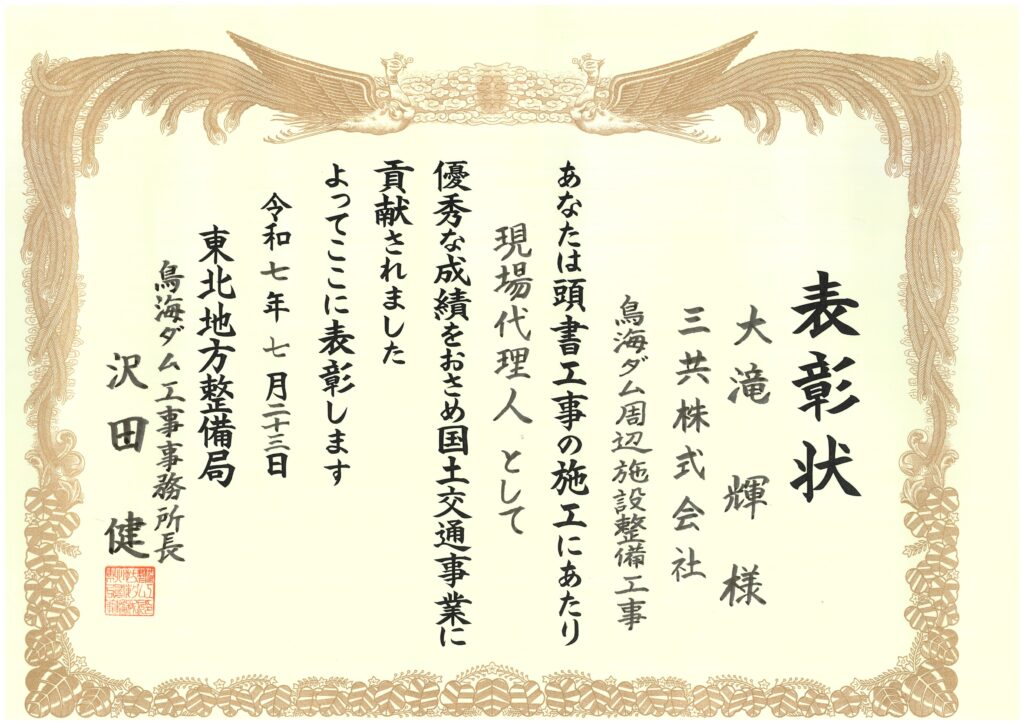 表彰状
大滝輝様
三共株式会社
鳥海ダム周辺施設整備工事
あなたは頭書工事の施工にあたり
現場代理人として
優秀な成績をおさめ国土交通事業に
貢献されました
よってここに表彰します
令和七年七月二十三日
東北地方整備局
鳥海ダム工事事務所長
沢田健